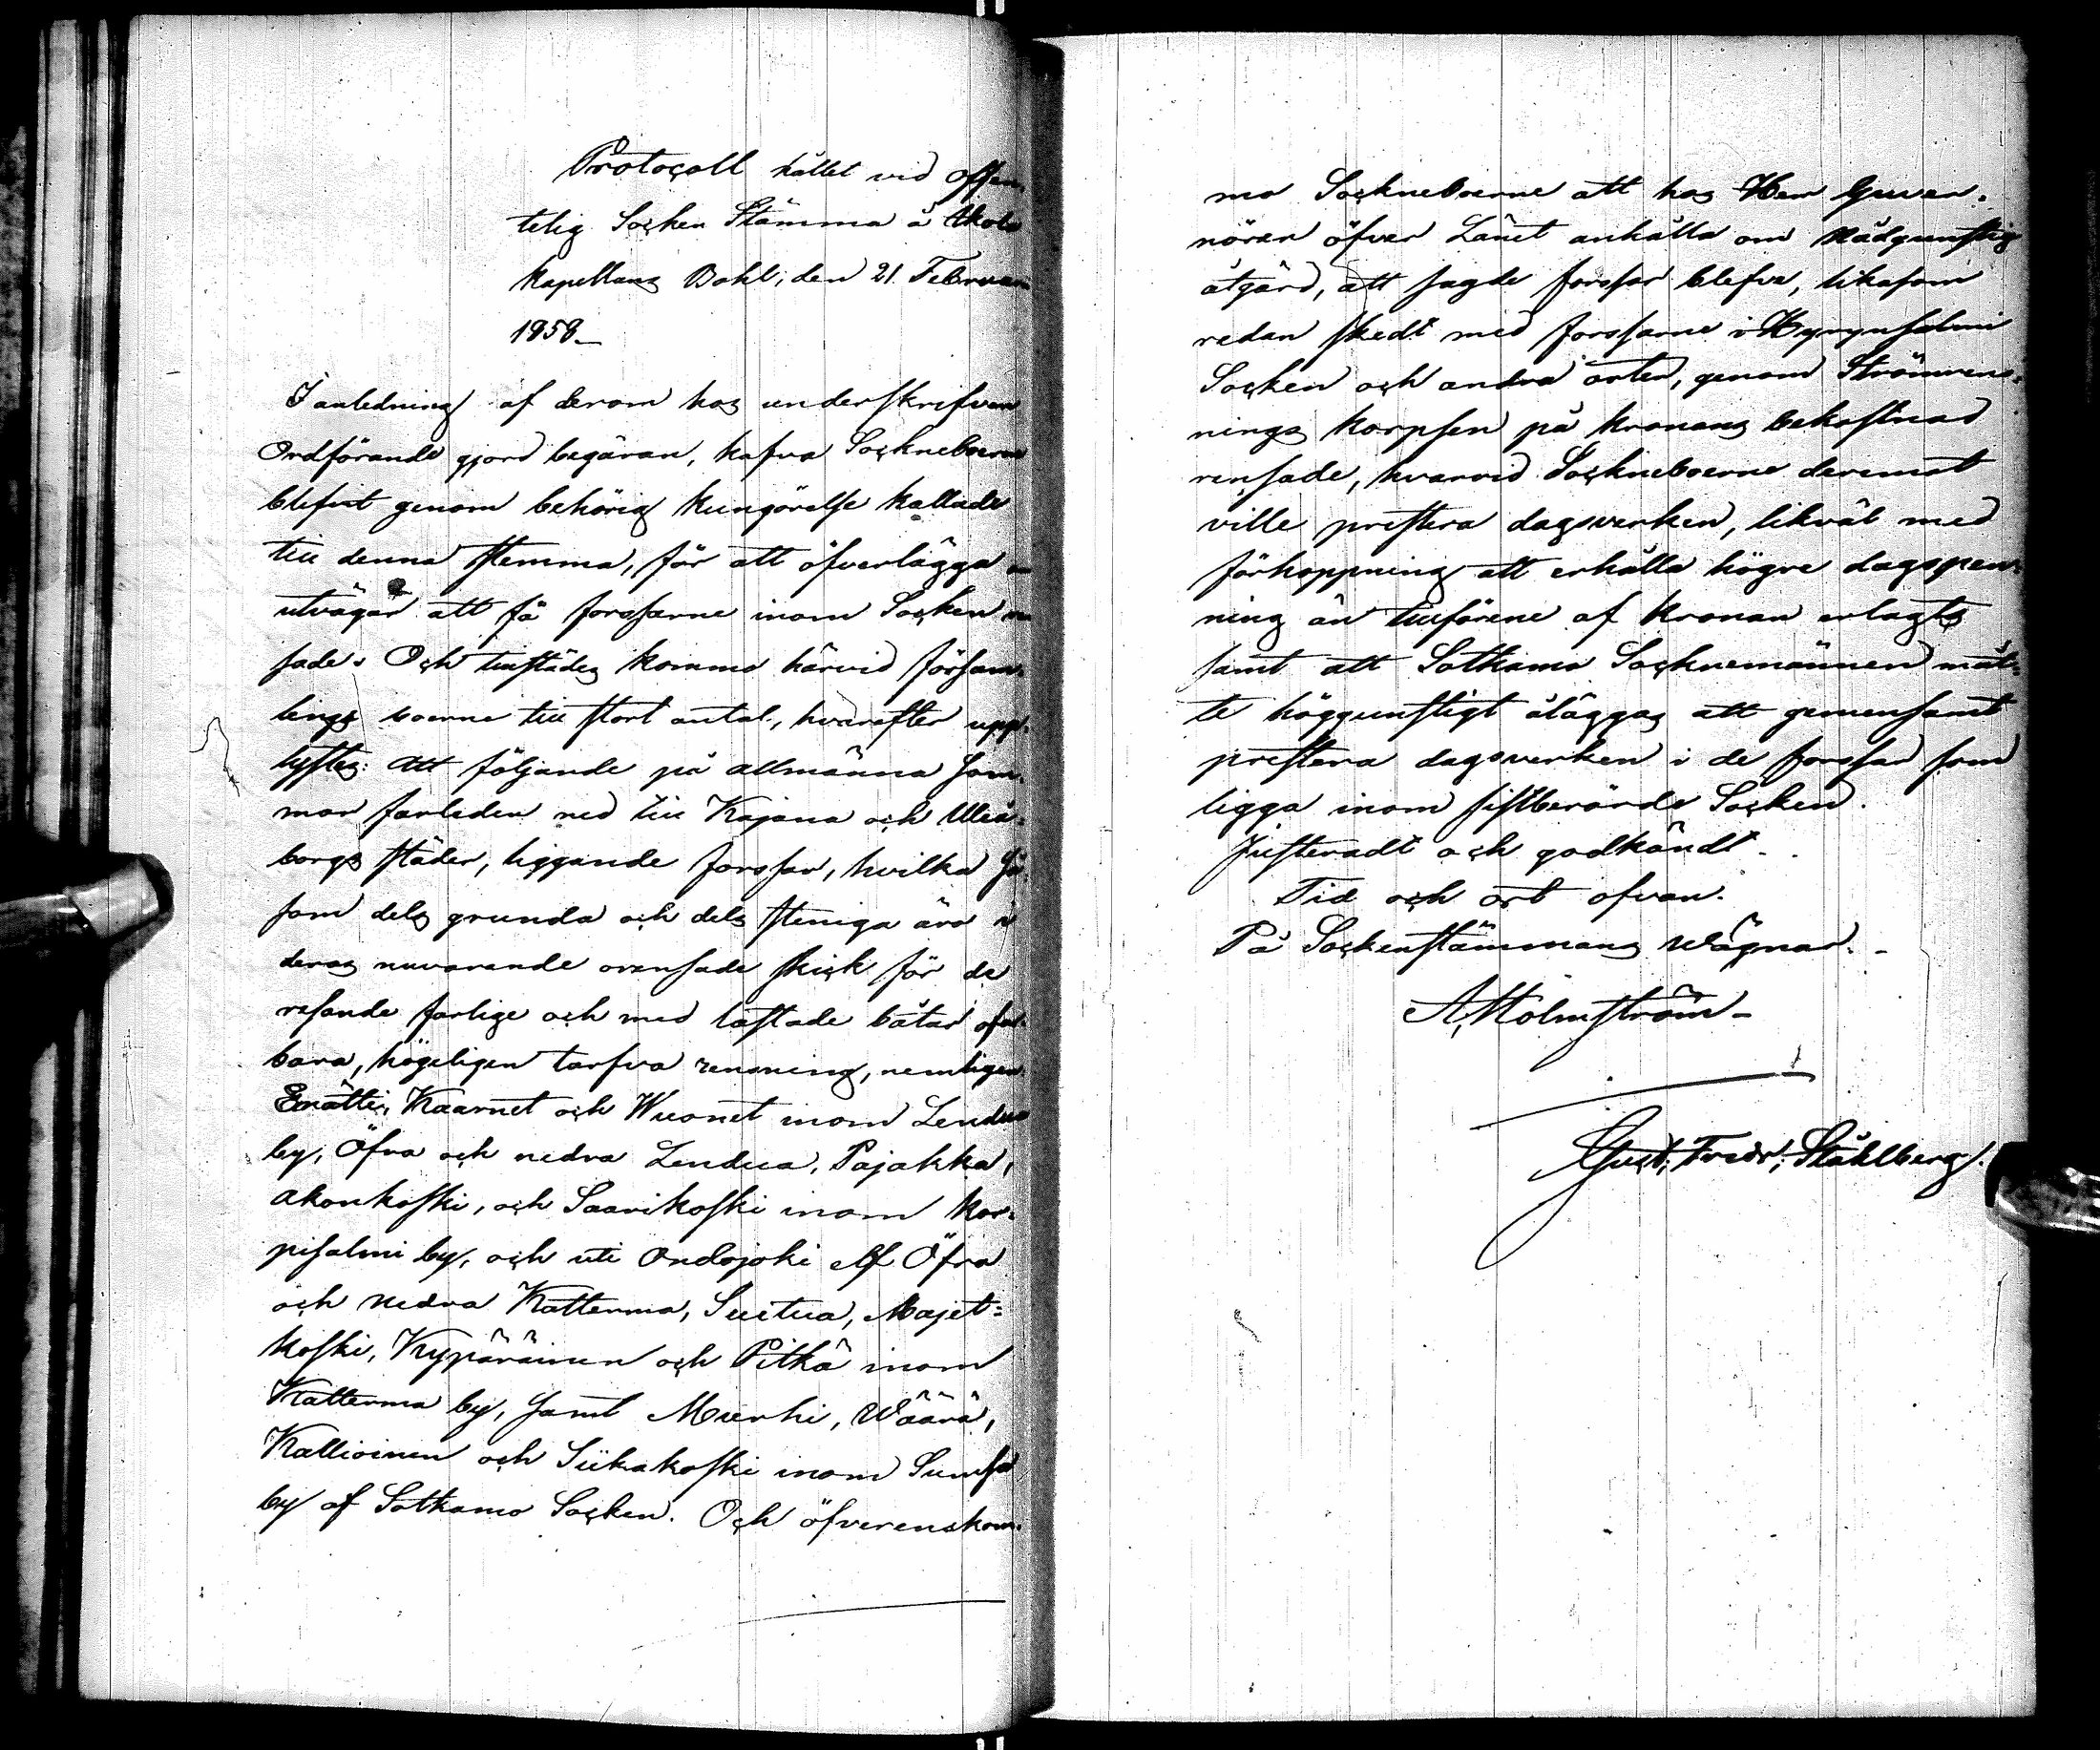 Protocoll hållet vid offen-
telig Socken Stämma å
Kapellans Bohl, den 21 Februari
1858._
I anledning af derom hos underskrifven
Ordförande gjord begäran, hafva Sockneboerne
blefvit genom behörig kungörelse kallade
till denna stemma, för att öfverlägga om
utvägar att få forssarne inom Socken ren
sade. Och tillstädes kommo härvid försam-
lings boerne till stort antal, hvarefter upp-
lystes: Att följande på allmänna som-
mar farleden ned till Kajana och Uleå-
borgs städer, liggande forssar, hvilka så
som dels grunda och dels steniga äro i
deras nuvarande orensade skick för de
resande farlige och med lastade båtar ofar-
bara, högeligen tarfva rensning, nemligen:
Emätti, Kaarnet och Wuonet inom Lendua
by, Öfra och nedra Lendua, Pajakka,
Akonkoski, och Saarikoski inom Kor-
pisalmi by, och uti Ondojoki elf Öfra
och Nedra Katterma, Suitua, Majet-
koski, Kypäräinen och Pitkä inom
Katterma by, samt Murhi, Wäärä,
Kallioinen och Siikakoski inom Sumsa
by af Sotkamo Socken. Och öfverenskom-
mo Sockneboerne att hos Herr Guver-
nören öfver Länet anhålla om Nådgunstig
åtgärd, att sagde forssar blefve, likasom
redan skedt med forssarne i Hyrynsalmi
Socken och andra orter, genom Strömrens-
nings korpsen på kronans bekostnad
rensade, hvarvid Sockneboerne deremot
ville prestera dagsverken, likväl med
förhoppning att erhålla högre dagspen-
ning än tillförene af Kronan erlagts
samt att Sotkamo Socknemännen måt-
te höggunstigt åläggas att gemensamt
prestera dagsverken i de forssar som
ligga inom sistberörde Socken.
Justeradt och godkändt.
Tid och ort ofvan.
På Sockenstämmans Wägnar._
A, Holmström_
Gust. Fredr. Ståhlberg.